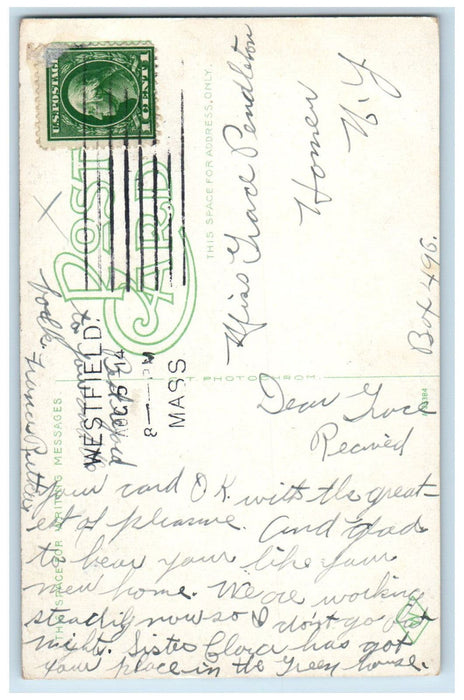 U.S. POSTAGE
1 CENT 1
POST
CARD
THIS SPACE FOR ADDRESS ONLY.
Miss Grace Pendleton
Homer
N.Y
Box 496.
WESTFIELD.
AUG 5 14
8 — PM
MASS.
THIS SPACE FOR WRITING MESSAGES
Dear Grace
Recieved
your card O K with the great-
est of pleasure. And glad
to hear your like your
new home. We are working
steadily now so I don't go out
night. Sister Clara has got
your place in the Green house.
Good
to
Folk